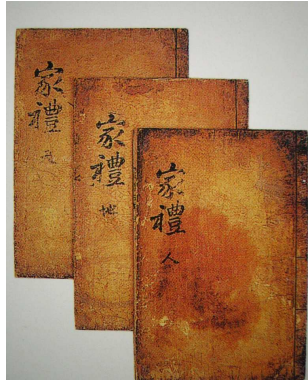 家禮 天
家禮 地
家禮 人